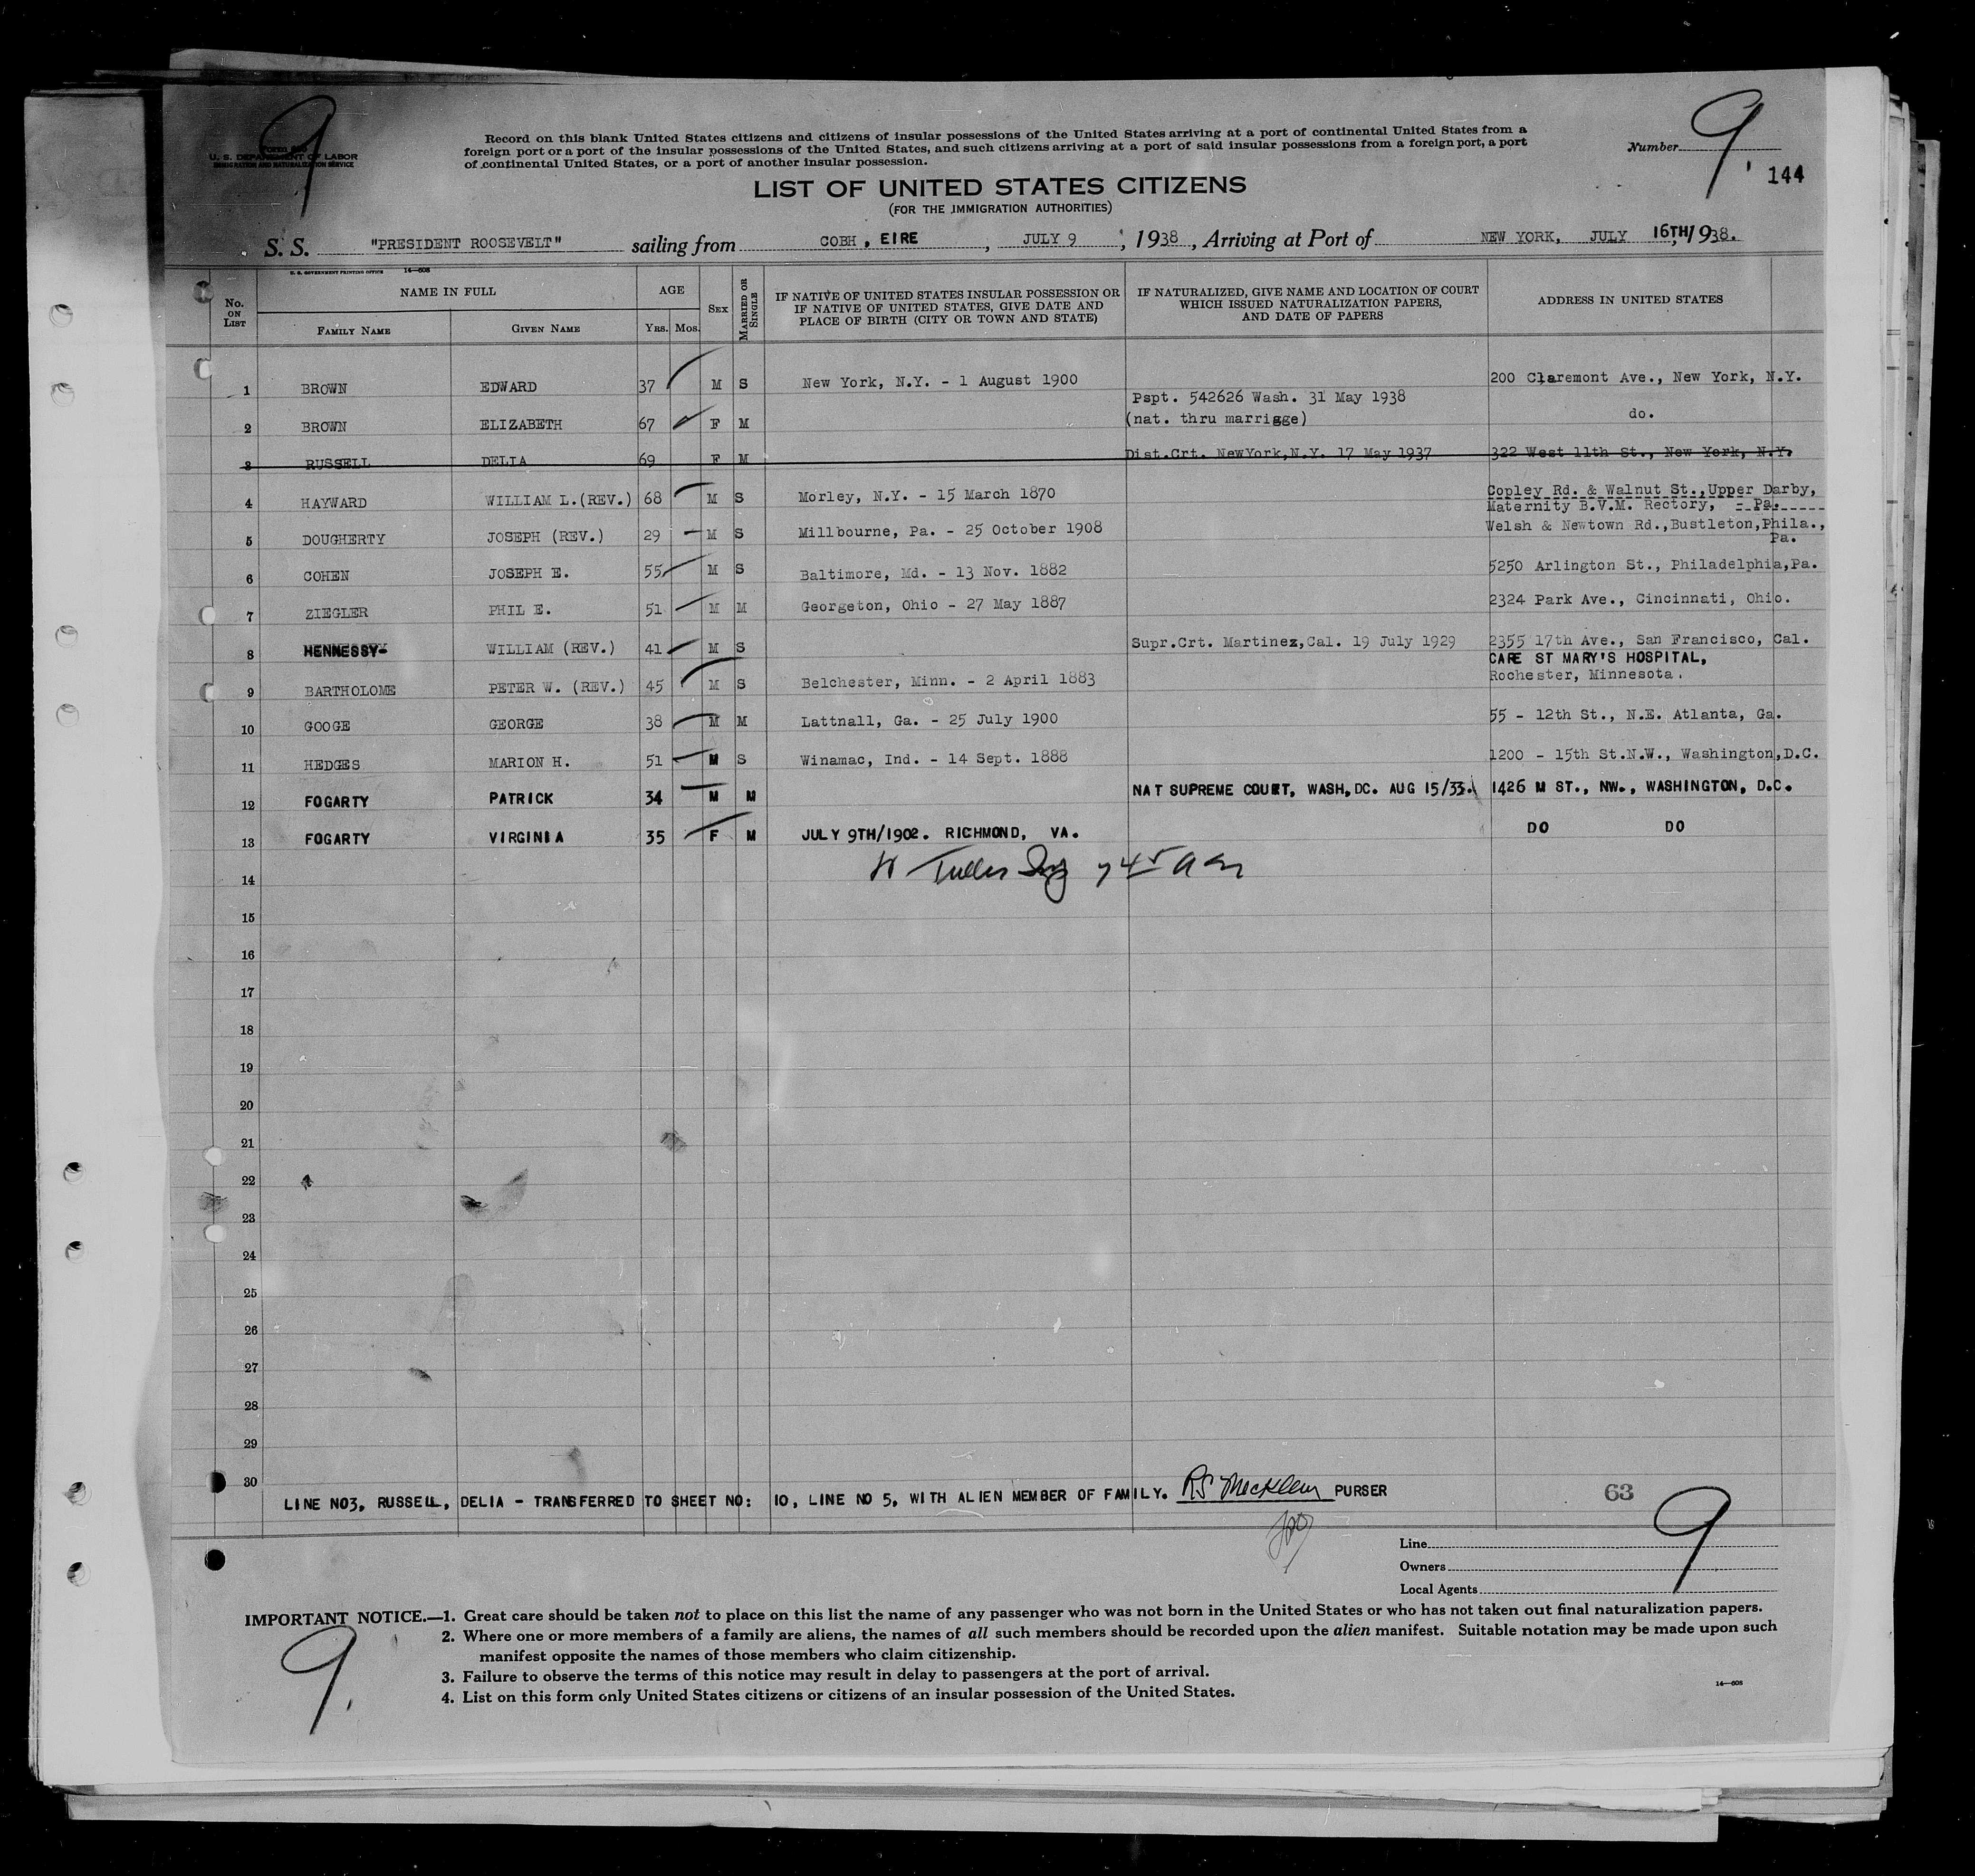 9
Form 630
U. S. DEPARTMENT OF LABOR
IMMIGRATION AND NATURALIZATION SERVICE
Record on this blank United States citizens and citizens of insular possessions of the United States arriving at a port of continental United States from a
foreign port or a port of the insular possessions of the United States, and such citizens arriving at a port of said insular possessions from a foreign port, a port
of continental United States, or a port of another insular possession.
Number 9
144
LIST OF UNITED STATES CITIZENS
(FOR THE IMMIGRATION AUTHORITIES)
S. S. "PRESIDENT ROOSEVELT" sailing from COBH, EIRE, JULY 9, 1938, Arriving at Port of NEW YORK, JULY 16TH, 1938.
U. S. GOVERNMENT PRINTING OFFICE 14—608
No. ON LIST NAME IN FULL FAMILY NAME GIVEN NAME AGE YRS. MOS. SEX MARRIED OR SINGLE IF NATIVE OF UNITED STATES INSULAR POSSESSION OR IF NATIVE OF UNITED STATES, GIVE DATE AND PLACE OF BIRTH (CITY OR TOWN AND STATE) IF NATURALIZED, GIVE NAME AND LOCATION OF COURT WHICH ISSUED NATURALIZATION PAPERS, AND DATE OF PAPERS ADDRESS IN UNITED STATES
1 BROWN EDWARD 37 M S New York, N.Y. - 1 August 1900 200 Claremont Ave., New York, N.Y.
Pspt. 542626 Wash. 31 May 1938
2 BROWN ELIZABETH 67 F M (nat. thru marrigge) do.
3 RUSSELL DELIA 69 F M Dist.Crt. NewYork,N.Y. 17 May 1937 322 West 11th St., New York, N.Y.
4 HAYWARD WILLIAM L.(REV.) 68 M S Morley, N.Y. - 15 March 1870 Copley Rd. & Walnut St.,Upper Darby,
Maternity B.V.M. Rectory, - Pa.
5 DOUGHERTY JOSEPH (REV.) 29 M S Millbourne, Pa. - 25 October 1908 Welsh & Newtown Rd.,Bustleton,Phila.,
Pa.
6 COHEN JOSEPH E. 55 M S Baltimore, Md. - 13 Nov. 1882 5250 Arlington St., Philadelphia,Pa.
7 ZIEGLER PHIL E. 51 M M Georgeton, Ohio - 27 May 1887 2324 Park Ave., Cincinnati, Ohio.
8 HENNESSY- WILLIAM (REV.) 41 M S Supr.Crt. Martinez,Cal. 19 July 1929 2355 17th Ave., San Francisco, Cal.
CARE ST MARY'S HOSPITAL,
9 BARTHOLOME PETER W. (REV.) 45 M S Belchester, Minn. - 2 April 1883 Rochester, Minnesota.
10 GOOGE GEORGE 38 M M Lattnall, Ga. - 25 July 1900 55 - 12th St., N.E. Atlanta, Ga.
11 HEDGES MARION H. 51 M S Winamac, Ind. - 14 Sept. 1888 1200 - 15th St.N.W., Washington,D.C.
12 FOGARTY PATRICK 34 M M NAT SUPREME COURT, WASH,DC. AUG 15/33. 1426 M ST., NW., WASHINGTON, D.C.
13 FOGARTY VIRGINIA 35 F M JULY 9TH/1902. RICHMOND, VA. DO DO
745 am
14
15
16
17
18
19
20
21
22
23
24
25
26
27
28
29
30
LINE NO3, RUSSELL, DELIA - TRANSFERRED TO SHEET NO: 10, LINE NO 5, WITH ALIEN MEMBER OF FAMILY. PURSER
63
9
Line
Owners
Local Agents
IMPORTANT NOTICE.—1. Great care should be taken not to place on this list the name of any passenger who was not born in the United States or who has not taken out final naturalization papers.
2. Where one or more members of a family are aliens, the names of all such members should be recorded upon the alien manifest. Suitable notation may be made upon such
manifest opposite the names of those members who claim citizenship.
3. Failure to observe the terms of this notice may result in delay to passengers at the port of arrival.
4. List on this form only United States citizens or citizens of an insular possession of the United States.
9.
14—608